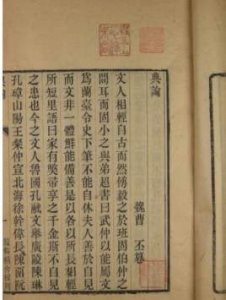 典論
魏曹　丕譔
文人相輕自古而然傅毅之於班固伯仲之
間耳而固小之與弟超書曰武仲以能屬文
爲蘭臺令史下筆不能自休夫人善於自見
而文非一體鮮能備善是以各以所長相輕
所短里語曰家有弊帚享之千金斯不自見
之患也今之文人魯國孔融文舉廣陵陳琳
孔璋山陽王粲仲宣北海徐幹偉長陳留阮
典論
一